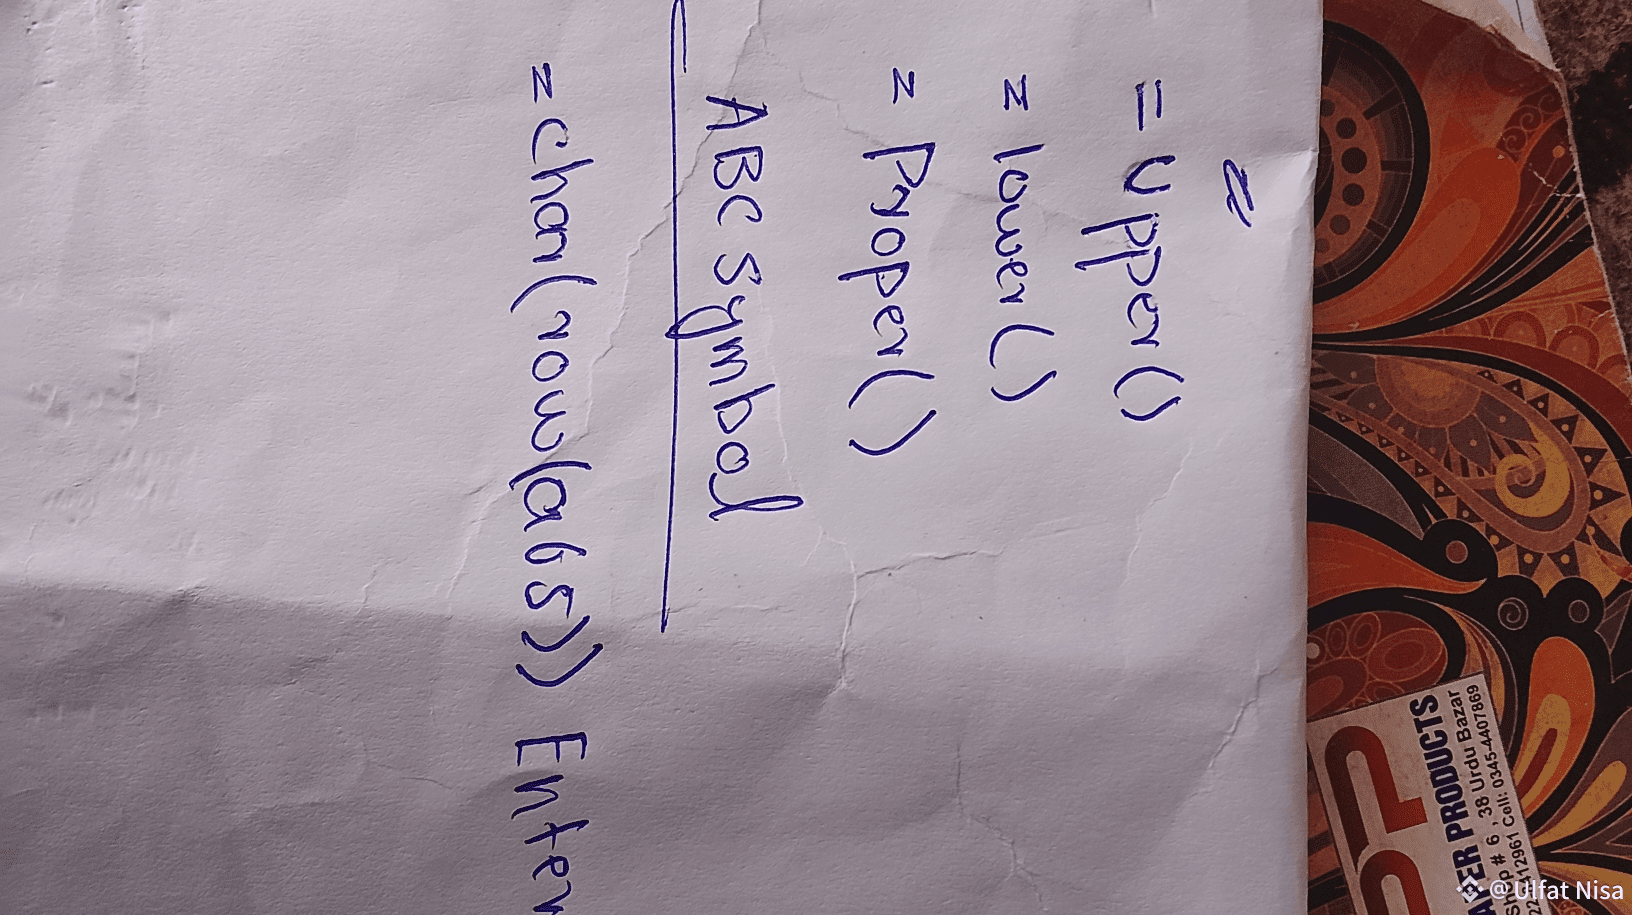 = Upper()
= lower()
= Proper()
ABC Symbol
= char(row(a65)) Enter
PRODUCTS
Shop # 6, 38 Urdu Bazar
Cell: 0345-4407869
@Ulfat Nisa